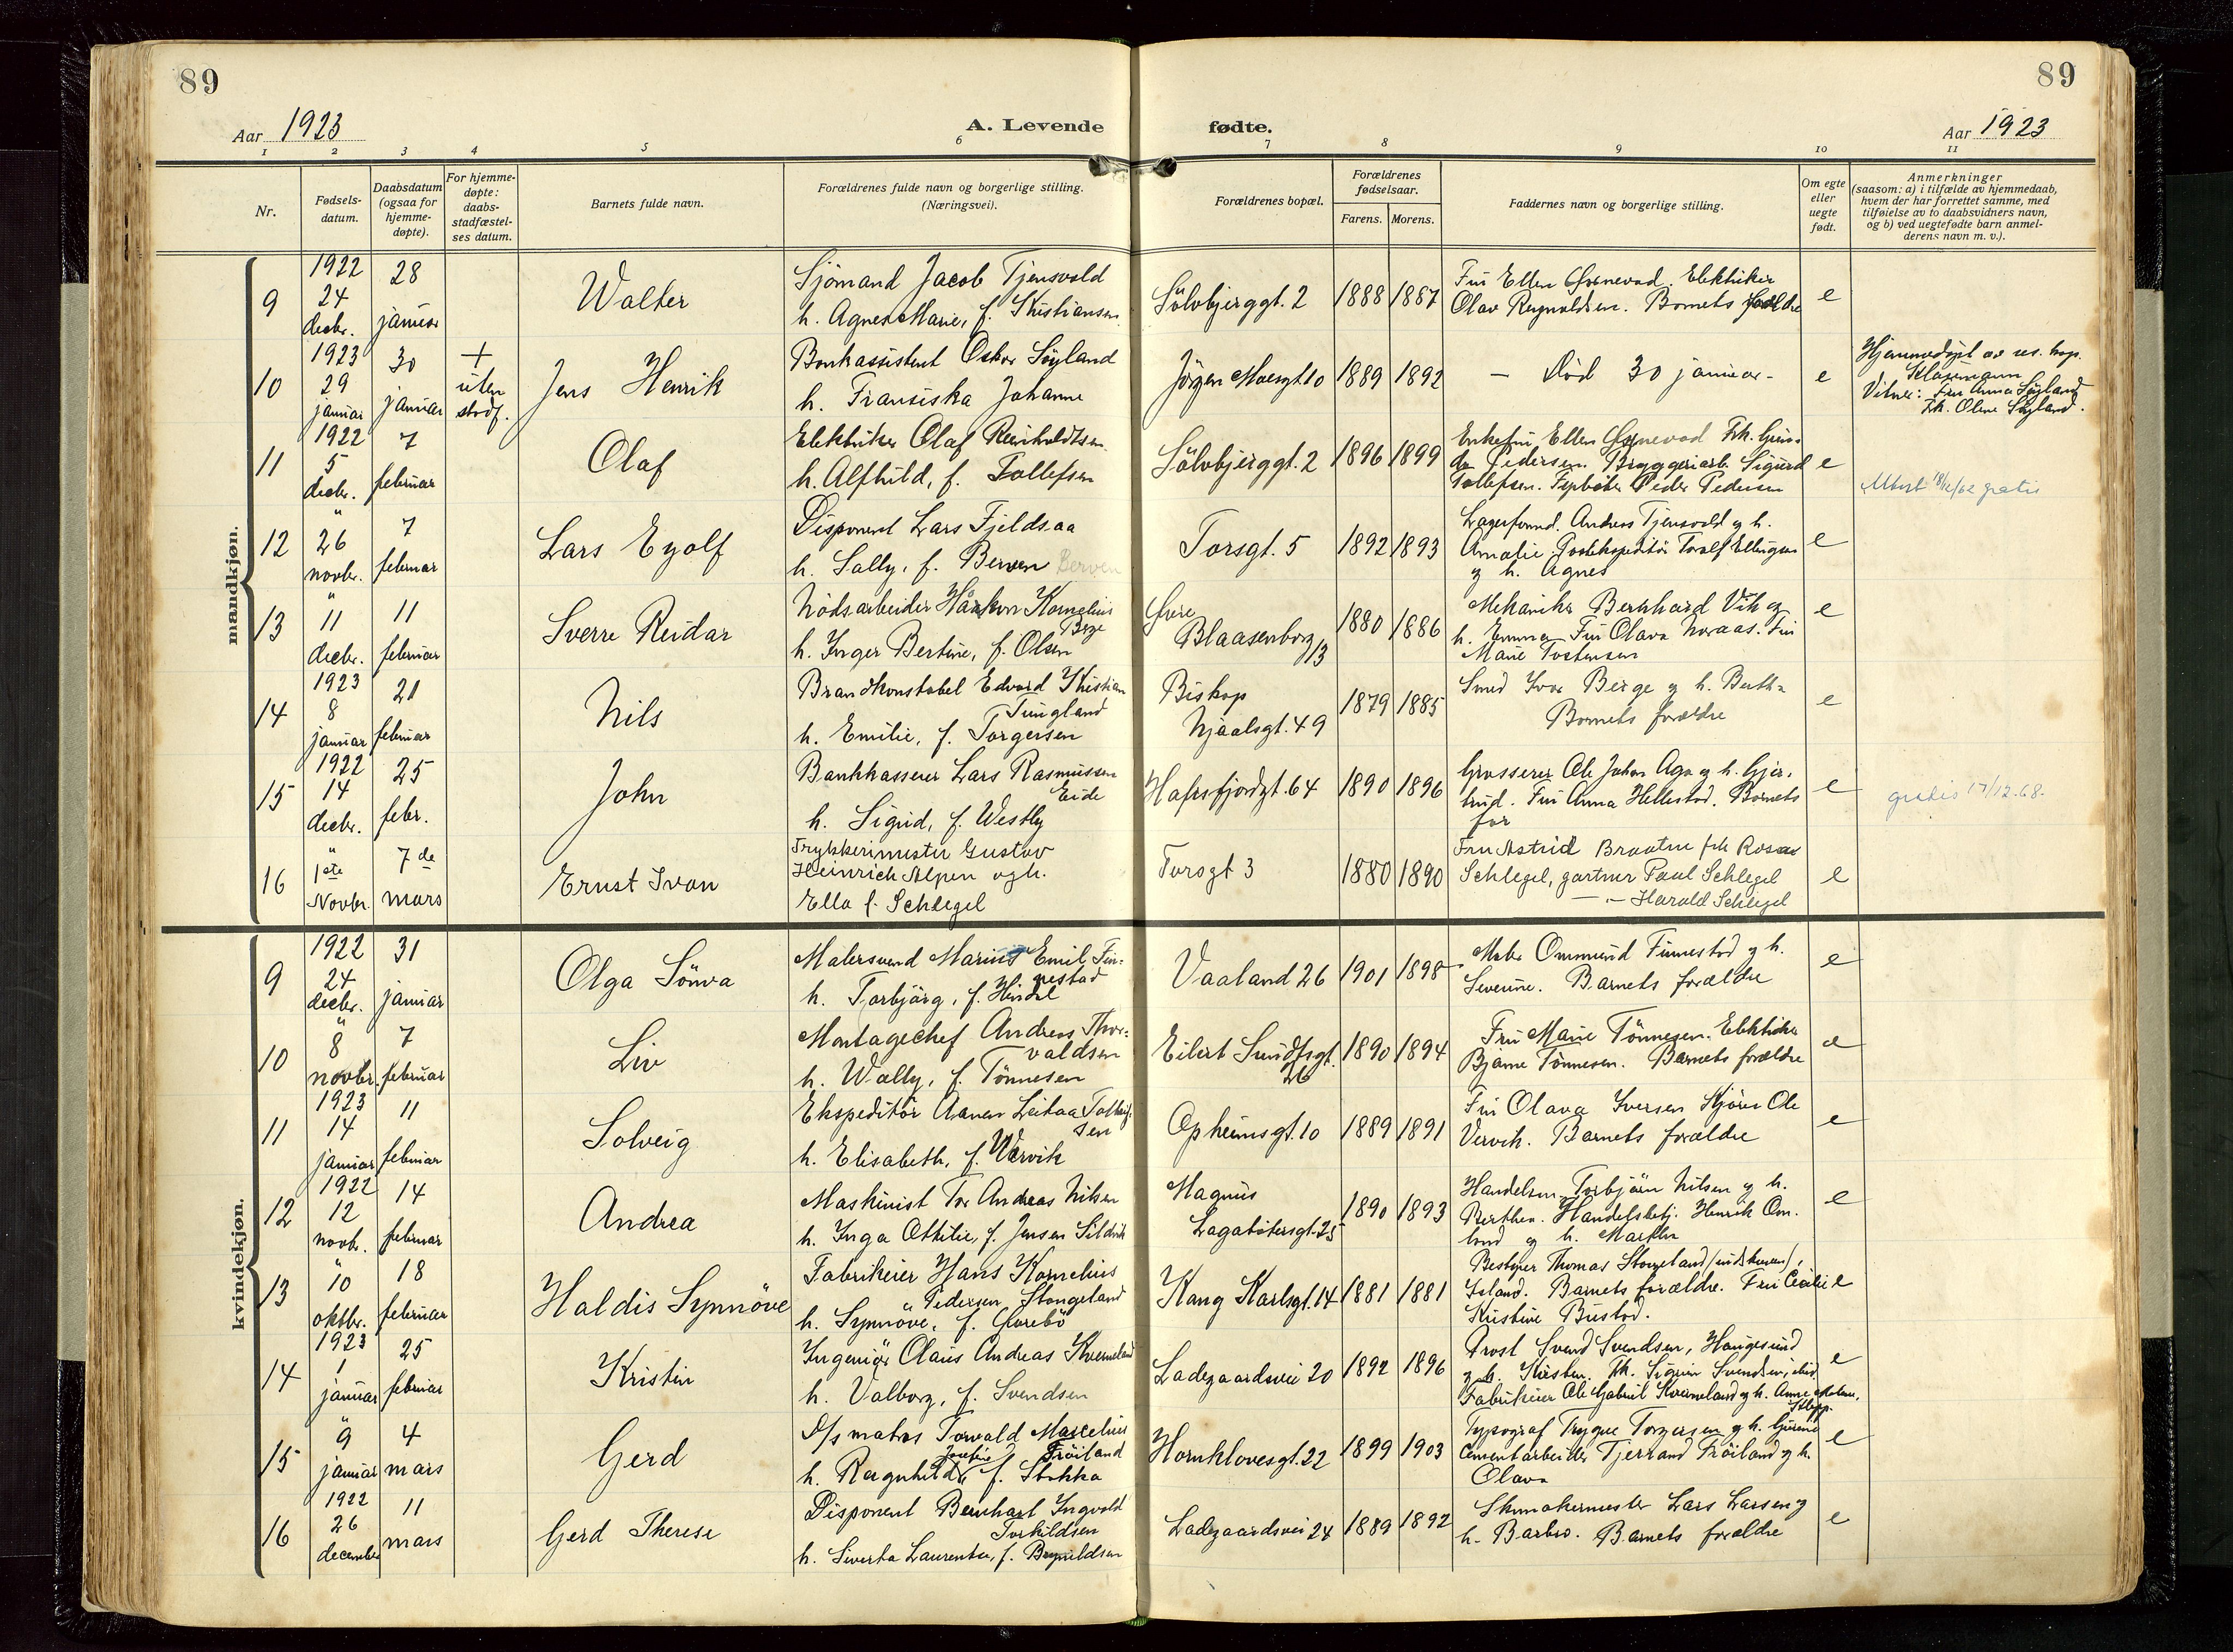 89
89
Aar 1923
A. Levende fødte.
Aar 1923
1 2 3 4 5 6 7 8 9 10 11
Nr.
Fødsels-
datum.
Daabsdatum
(ogsaa for
hjemme-
døpte).
For hjemme-
døpte:
daabs-
stadfæstel-
ses datum.
Barnets fulde navn.
Forældrenes fulde navn og borgerlige stilling.
(Næringsvei).
Forældrenes bopæl.
Forældrenes
fødselsaar.
Farens. Morens.
Faddernes navn og borgerlige stilling.
Om egte
eller
uegte
født.
Anmerkninger
(saasom: a) i tilfælde av hjemmedaab,
hvem der har forrettet samme, med
tilføielse av to daabsvidners navn,
og b) ved uegtefødte barn anmel-
derens navn m. v.).
mandkjøn.
9
1922
24
decbr.
28
januar
Walter
Sjömand Jacob Tjensvold
h. Agnes Marie, f. Kristiansen
Sölvbjerggt. 2
1888 1887
Fru Ellen Elektriker
Olav Reynoldsen. Barnets
e
10
1923
29
januar
30
januar
+
uten
stadf.
Jens Henrik
Bankassistent Oskar Söyland
h. Fransiska Johanne
Jörgen Moesgt. 10
1889 1892
– Död 30 januar –
e
Hjemmedöpt av res. kap.
Vitner: Fru Anna Söyland
Frk. Oline Söyland.
11
1922
5
decbr.
7
februar
Olaf
Elektriker Olaf Reinholdtsen
h. Alfhild, f. Tollefsen
Sölvbjerggt. 2
1896 1899
Enkefru Ellen Frk. Gun-
da Pedersen. Bryggeriarb. Sigurd
Tollefsen. Peder Pedersen
e
Attest 18/12/62 gratis
12
"
26
novbr.
7
februar
Lars Eyolf
Disponent Lars Fjeldsaa
h. Sally, f. Berven Berven
Torsgt. 5
1892 1893
Lagerformd. Andreas Tjensvold og h.
Amalie. Postekspeditör Toralf Ellingsen
og h. Agnes
e
13
"
11
decbr.
11
februar
Sverre Reidar
Nödsarbeider Haakon Kornelius
Berge
h. Inger Bertine, f. Olsen
Övre
Blaasenborg
13
1880 1886
Mekaniker Bernhard Vik og
h. Emma Fru Olava Noraas. Fru
Marie Tostensen
e
14
1923
8
januar
21
februar
Nils
Brandkonstabel Edvard Kristian
Tungland
h. Emilie, f. Torgersen
Biskop
Njaalsgt. 49
1879 1885
Smed Ivar Berge og h. Berth
Barnets forældre
e
15
1922
14
decbr.
25
febr.
John
Bankkasserer Lars Rasmussen
Eide
h. Sigrid, f. Westly
Hafrsfjordgt. 64
1890 1896
Grosserer Ole Johan Aga og h. Gjer-
trud. Fru Anna Hellestad. Barnets
far
e
gratis 17/12.68.
16
"
1ste
Novbr.
7de
mars
Ernst Ivan
Trykkerimester Gustav
Heinrich Alpen og h.
Ella f. Schlegel
Torsgt 3
1880 1890
Fru Astrid Braatne frk Rosa
Schlegel, gartner Paul Schlegel
— " — Harald Schlegel
e
kvindekjøn.
9
1922
24
decbr.
31
januar
Olga Sönva
Malersvend Marius Emil Fin-
nestad
h. Torbjörg, f.
Vaaland 26
1901 1898
Maler Ommund Finnestad og h.
Severine. Barnets forældre
e
10
"
8
novbr.
7
februar
Liv
Montagechef Andreas Thor-
valdsen
h. Wally, f. Tönnesen
Eilert Sundtsgt.
26
1890 1894
Fru Marie Tönnesen. Elektriker
Bjarne Tönnesen. Barnets forældre
e
11
1923
14
januar
11
februar
Solveig
Ekspeditör
h. Elisabeth, f. Vervik
Opheimsgt. 10
1889 1891
Fru Olava Iversen Ole
Vervik. Barnets forældre
e
12
1922
12
novbr.
14
februar
Andrea
Maskinist Tor Andreas Nilsen
h. Inga Ottilie, f. Jensen
Magnus
Lagabötersgt. 25
1890 1893
Handelsm. Torbjörn Nilsen og h.
Berthea. Handelsbetj. Henrik Om-
lund og h. Martha
e
13
"
10
oktbr.
18
februar
Haldis Synnöve
Fabrikeier Hans Kornelius
Pedersen Stangeland
h. Synnöve, f.
Kong Karlsgt. 14
1881 1881
Bestyrer Thomas Stangeland
Island. Barnets forældre. Fru Cecilie
Kristine Bustad.
e
14
1923
1
januar
25
februar
Kristin
Ingeniör Olaus Andreas Kverneland
h. Valborg, f. Svendsen
Ladegaardsvei 20
1892 1896
Prost Svend Svendsen, Haugesund
og h. Kirsten. Frk. Sigrun Svendsen, ibid.
Fabrikeier Ole Gabriel Kverneland og h. Anna Malene,
Klepp.
e
15
"
9
januar
4
mars
Gerd
D/s matros Torvald Marcelius
Fröiland
h. Ragnhild Josefine f. Stokka
Hornklovesgt. 22
1899 1903
Typograf Trygve Torgersen og h.
Cementarbeider Tjerrand Fröiland og h.
Olava
e
16
1922
26
december
11
mars
Gerd Therese
Disponent Bernhart Ingvald
Torkildsen
h. Siverta Laurentse, f. Brynildsen
Ladegaardsvei 24
1889 1892
Skomakermester Lars Larsen og
h. Barbro. Barnets forældre
e